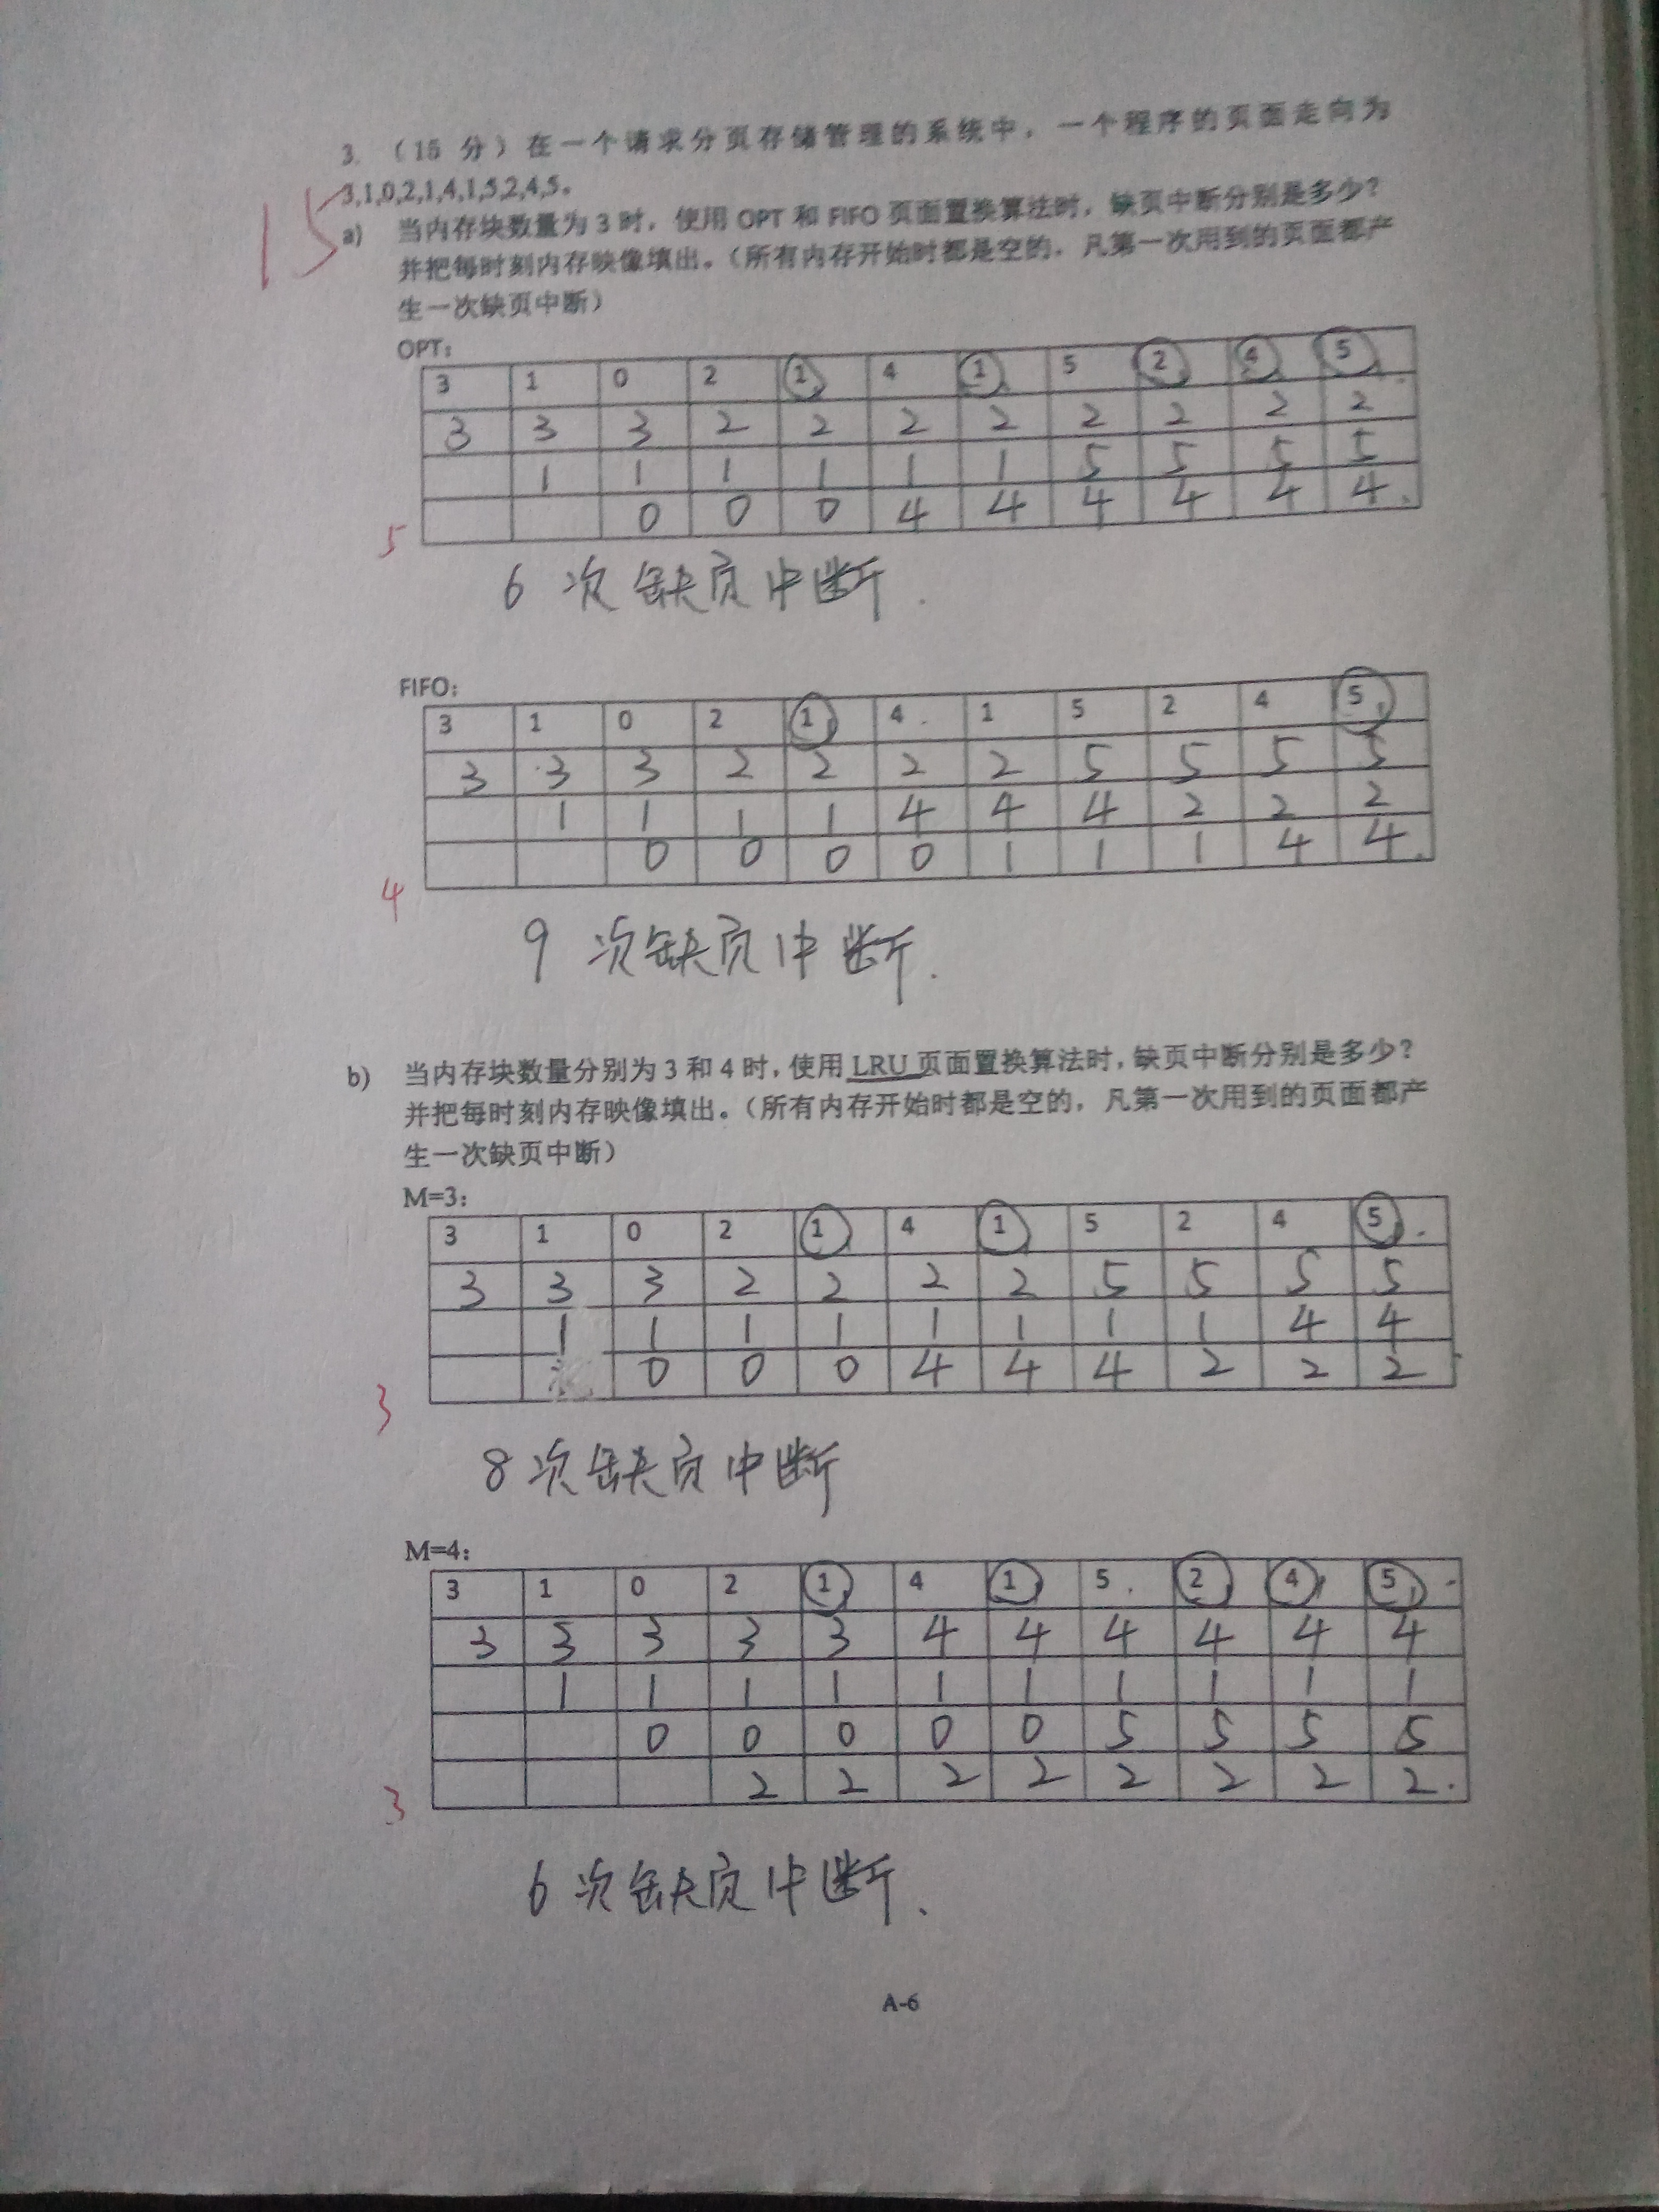 3. （15 分）在一个请求分页存储管理的系统中，一个程序的页面走向为
3,1,0,2,1,4,1,5,2,4,5。
15
a) 当内存块数量为 3 时，使用 OPT 和 FIFO 页面置换算法时，缺页中断分别是多少？
并把每时刻内存映像填出。（所有内存开始时都是空的，凡第一次用到的页面都产
生一次缺页中断）
OPT：
3 1 0 2 1 4 1 5 2 4 5
3 3 3 2 2 2 2 2 2 2 2
1 1 1 1 1 1 5 5 5 5
0 0 0 4 4 4 4 4 4
5
6 次缺页中断.
FIFO：
3 1 0 2 1 4 1 5 2 4 5
3 3 3 2 2 2 2 5 5 5 5
1 1 1 1 4 4 4 2 2 2
0 0 0 0 1 1 1 4 4
4
9 次缺页中断.
b) 当内存块数量分别为 3 和 4 时，使用 LRU 页面置换算法时，缺页中断分别是多少？
并把每时刻内存映像填出。（所有内存开始时都是空的，凡第一次用到的页面都产
生一次缺页中断）
M=3：
3 1 0 2 1 4 1 5 2 4 5
3 3 3 2 2 2 2 5 5 5 5
1 1 1 1 1 1 1 1 4 4
0 0 0 4 4 4 2 2 2
3
8 次缺页中断
M=4：
3 1 0 2 1 4 1 5 2 4 5
3 3 3 3 3 4 4 4 4 4 4
1 1 1 1 1 1 1 1 1 1
0 0 0 0 0 5 5 5 5
2 2 2 2 2 2 2 2
3
6 次缺页中断.
A-6